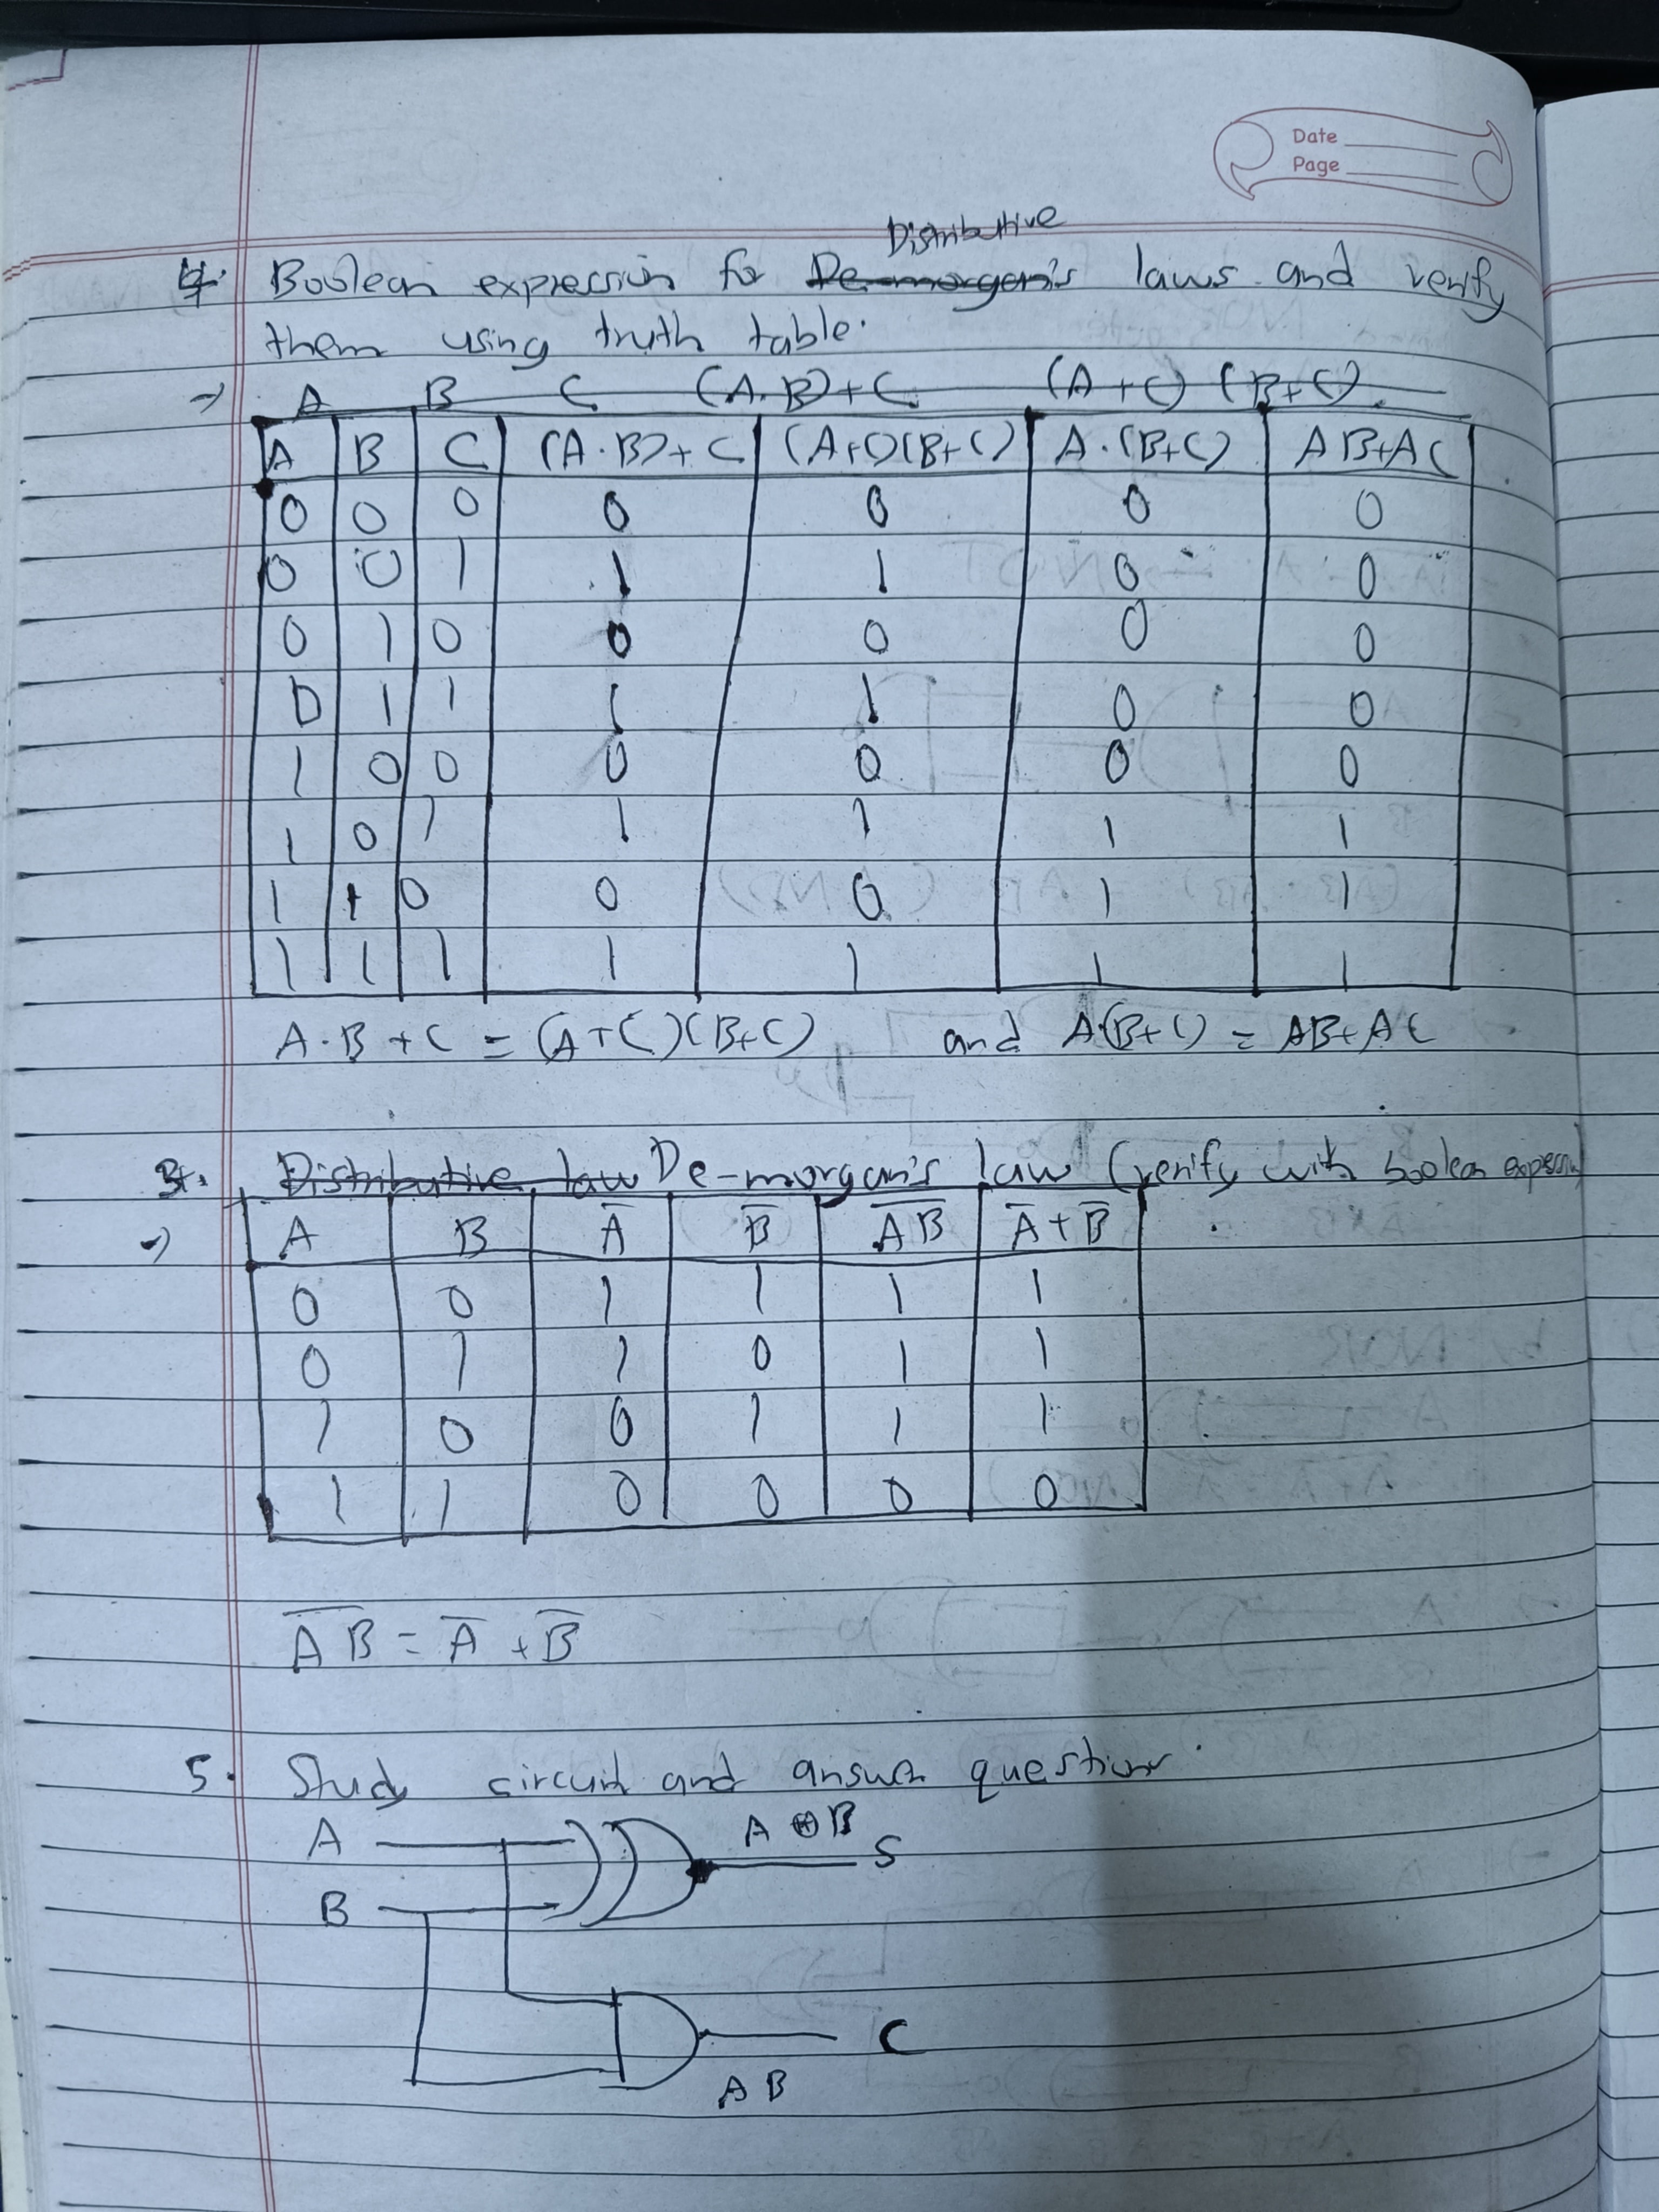 Date
Page
Distributive
4. Boolean expression for De-morgan's laws and verify
them using truth table.
→ A B C (A.B)+C (A+C) (B+C)
A B C (A.B)+C (A+C)(B+C) A.(B+C) AB+AC
0 0 0 0 0 0 0
0 0 1 1 1 0 0
0 1 0 0 0 0 0
0 1 1 1 1 0 0
1 0 0 0 0 0 0
1 0 1 1 1 1 1
1 1 0 0 0 1 1
1 1 1 1 1 1 1
A.B+C = (A+C)(B+C) and A.(B+C) = AB+AC
3. Distributive law De-morgan's law (verify with boolean
→ A B A̅ B̅ A̅B̅ A̅+B̅
0 0 1 1 1 1
0 1 1 0 1 1
1 0 0 1 1 1
1 1 0 0 0 0
A̅B̅ = A̅ + B̅
5. Study circuit and question.
A A ⊕ B S
B
C
AB